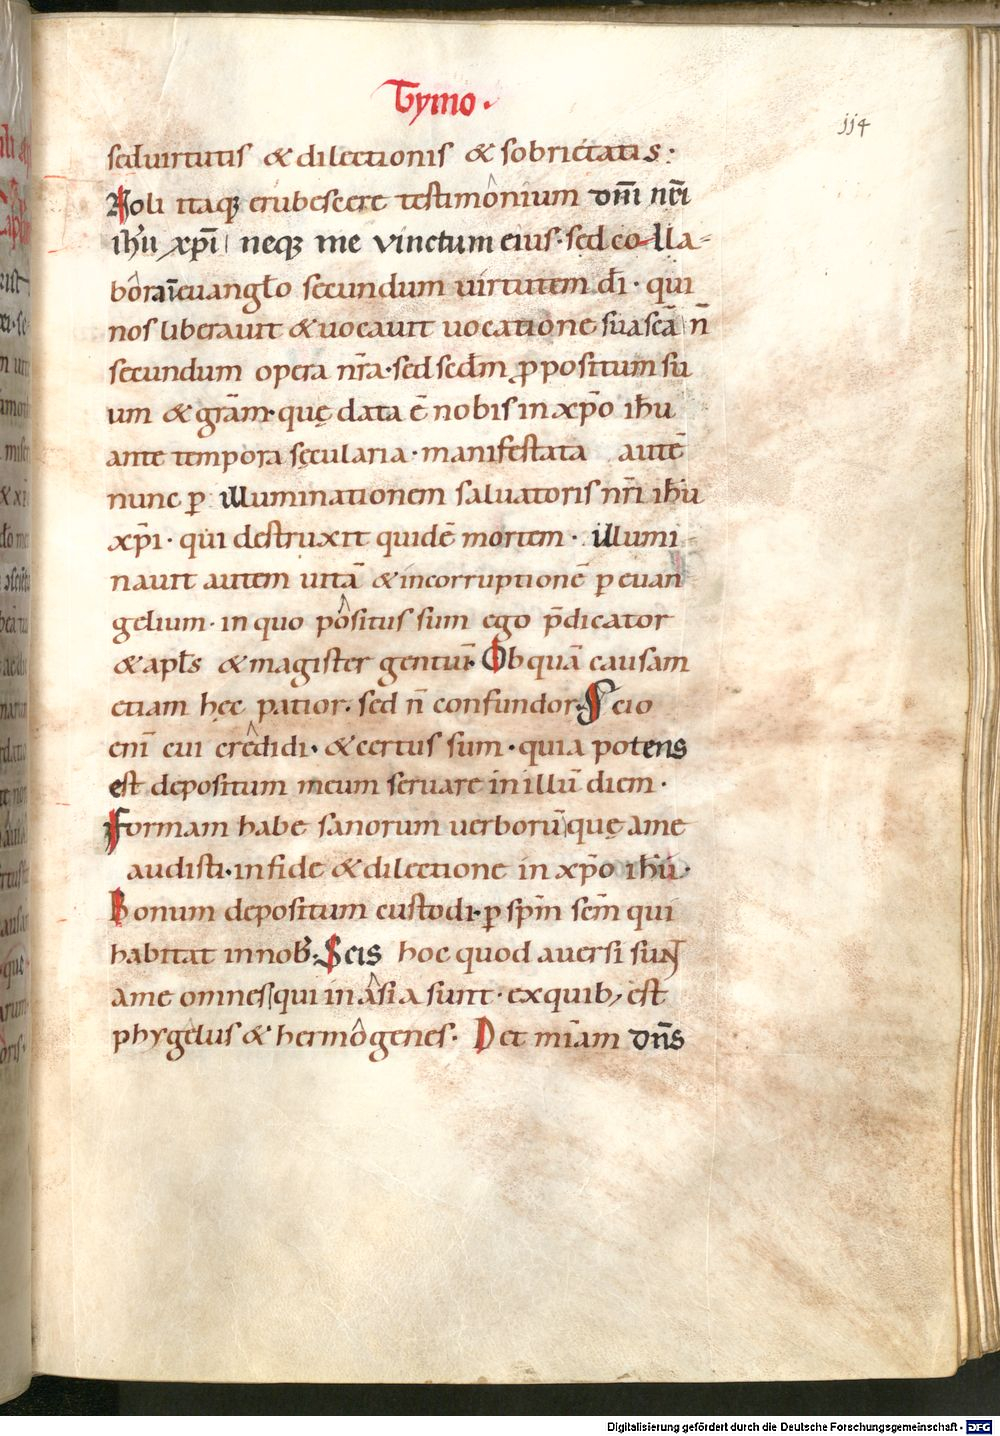 Tymo.
114
sed virtutis & dilectionis & sobrietatis:
Noli itaq; erubescere testimonium dn̄i nr̄i
ih̄u xp̄i neq; me vinctum eius · sed colla-
bora in euangl̄o secundum virtutem d̄i · qui
nos liberauit & uocauit uocatione sua sc̄a n̄
secundum opera nr̄a · sed scd̄m ꝓpositum su
um & gr̄am · quę data ē nobis in xp̄o ih̄u
ante tempora secularia · manifestata autē
nunc ꝑ illuminationem saluatoris nr̄i ih̄u
xp̄i · qui destruxit quidē mortem · illumi
nauit autem uitā & incorruptionē ꝑ euan
gelium · in quo positus sum ego p̄dicator
& apl̄s & magister gentiū · Ob quā causam
etiam hęc patior · sed n̄ confundor · Scio
enī cui credidi · & certus sum · quia potens
est depositum meum seruare in illū diem ·
Formam habe sanorum uerborū quę a me
audisti · in fide & dilectione in xp̄o ih̄u ·
Bonum depositum custodi · ꝑ sp̄m sc̄m qui
habitat in nob̄ : Scis hoc quod auersi sunt
a me omnes qui in asia sunt · ex quib; est
phygelus & hermogenes · Det mīam dn̄s
Digitalisierung gefördert durch die Deutsche Forschungsgemeinschaft - DFG